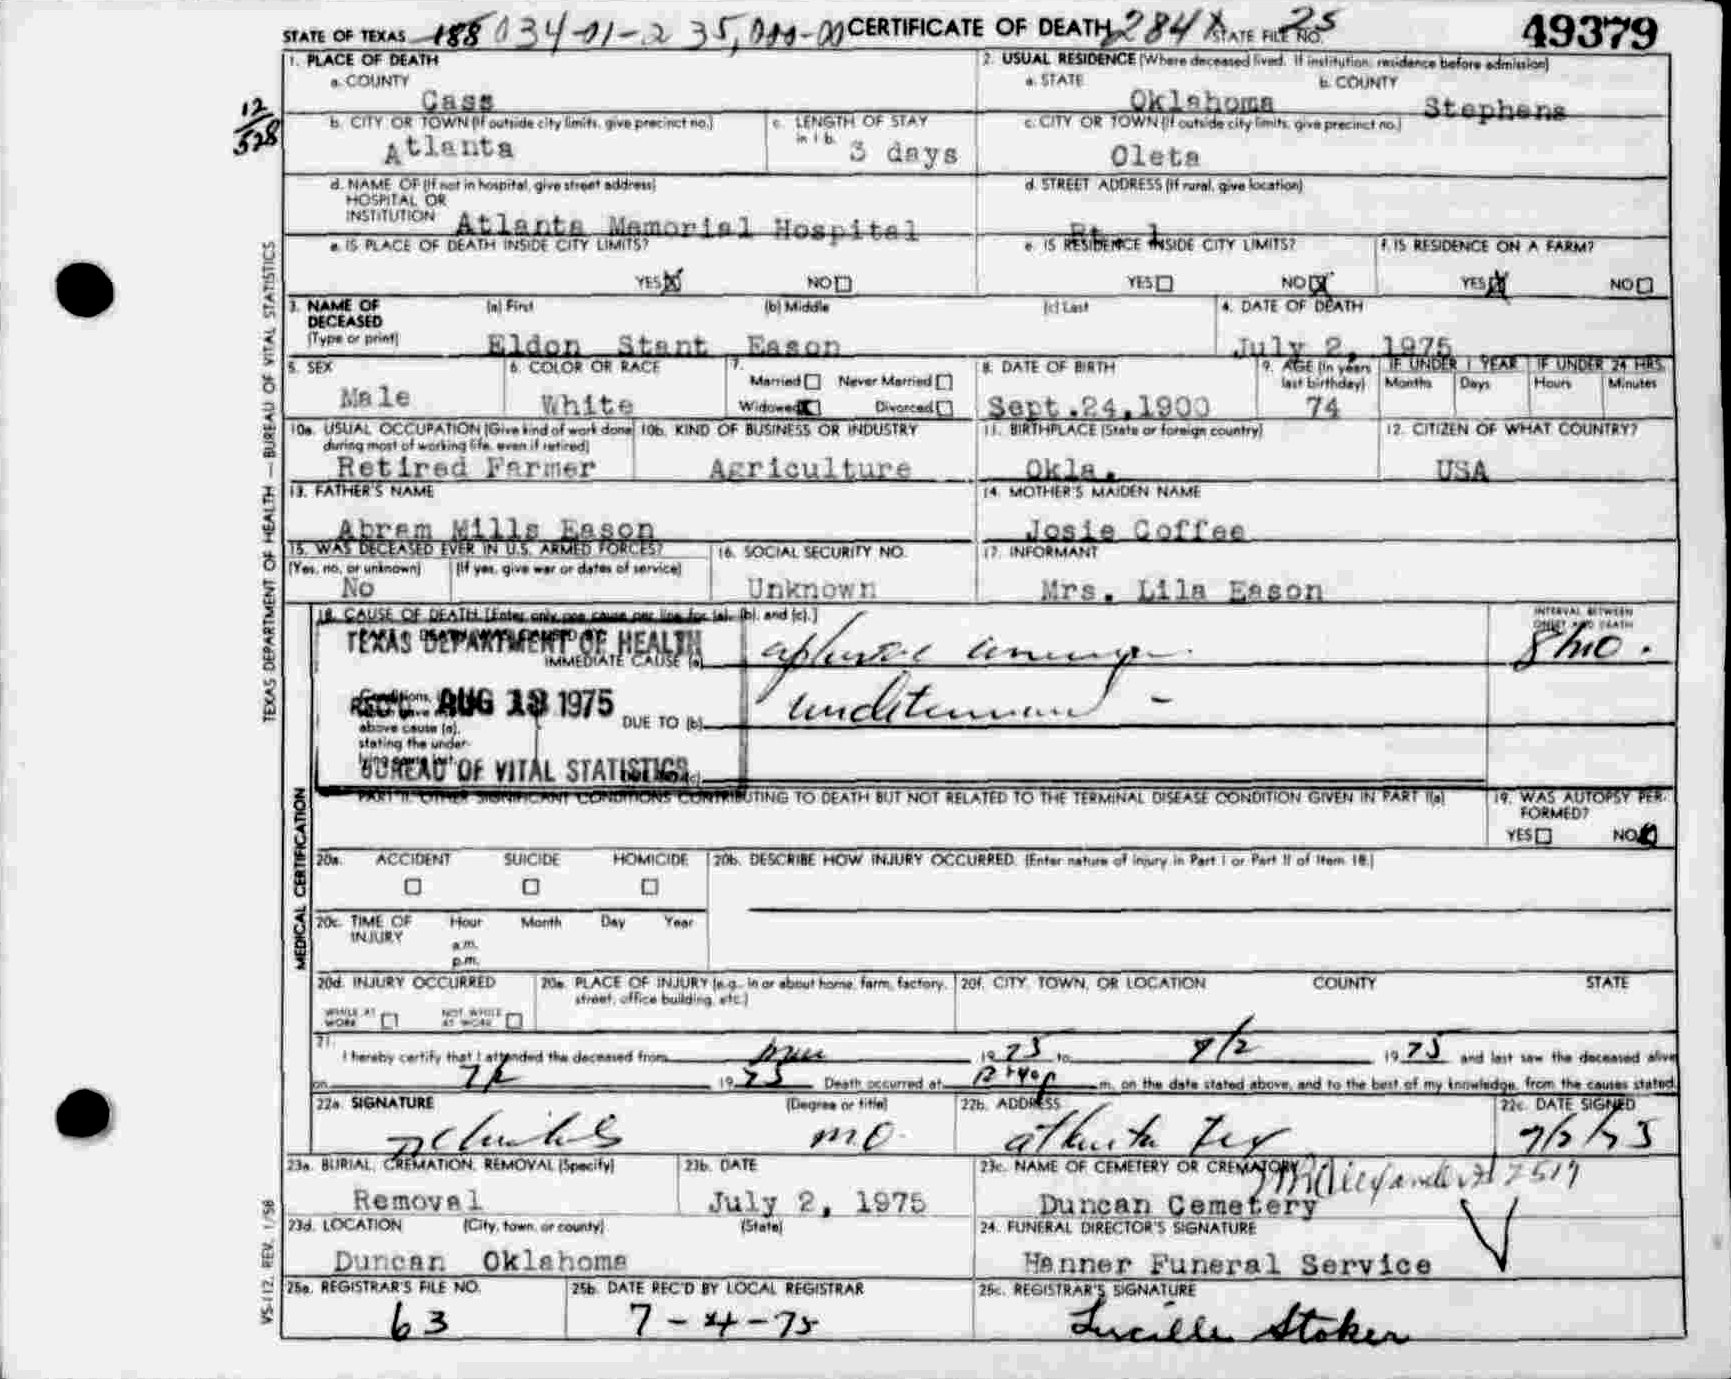 STATE OF TEXAS 188 034-01-2 35,000-00 CERTIFICATE OF DEATH 284X STATE FILE NO. 25 49379
1. PLACE OF DEATH
a. COUNTY
Cass
2. USUAL RESIDENCE (Where deceased lived. If institution: residence before admission)
a. STATE b. COUNTY
Oklahoma Stephens
12/528
b. CITY OR TOWN (If outside city limits, give precinct no.)
Atlanta
c. LENGTH OF STAY
in 1 b.
3 days
c. CITY OR TOWN (If outside city limits, give precinct no.)
Oleta
d. NAME OF (If not in hospital, give street address)
HOSPITAL OR
INSTITUTION Atlanta Memorial Hospital
d. STREET ADDRESS (If rural, give location)
Rt. 1
e. IS PLACE OF DEATH INSIDE CITY LIMITS?
YES X NO
e. IS RESIDENCE INSIDE CITY LIMITS?
YES NO X
f. IS RESIDENCE ON A FARM?
YES X NO
3. NAME OF
DECEASED
(Type or print)
(a) First (b) Middle (c) Last
Eldon Stant Eason
4. DATE OF DEATH
July 2, 1975
5. SEX
Male
6. COLOR OR RACE
White
7.
Married Never Married
Widowed X Divorced
8. DATE OF BIRTH
Sept.24,1900
9. AGE (In years
last birthday)
74
IF UNDER 1 YEAR
Months Days
IF UNDER 24 HRS.
Hours Minutes
10a. USUAL OCCUPATION (Give kind of work done
during most of working life, even if retired)
Retired Farmer
10b. KIND OF BUSINESS OR INDUSTRY
Agriculture
11. BIRTHPLACE (State or foreign country)
Okla.
12. CITIZEN OF WHAT COUNTRY?
USA
13. FATHER'S NAME
Abram Mills Eason
14. MOTHER'S MAIDEN NAME
Josie Coffee
15. WAS DECEASED EVER IN U.S. ARMED FORCES?
(Yes, no, or unknown) (If yes, give war or dates of service)
No
16. SOCIAL SECURITY NO.
Unknown
17. INFORMANT
Mrs. Lila Eason
18. CAUSE OF DEATH [Enter only one cause per line for (a), (b), and (c).]
INTERVAL BETWEEN
ONSET AND DEATH
TEXAS DEPARTMENT OF HEALTH
IMMEDIATE CAUSE (a) aplastic anemia
8 mo.
REC'D AUG 18 1975
above cause (a),
stating the under-
DUE TO (b) undetermined -
BUREAU OF VITAL STATISTICS
PART II. OTHER SIGNIFICANT CONDITIONS CONTRIBUTING TO DEATH BUT NOT RELATED TO THE TERMINAL DISEASE CONDITION GIVEN IN PART I(a)
19. WAS AUTOPSY PER-
FORMED?
YES NO X
20a. ACCIDENT SUICIDE HOMICIDE
20b. DESCRIBE HOW INJURY OCCURRED. (Enter nature of injury in Part I or Part II of Item 18.)
20c. TIME OF
INJURY
Hour Month Day Year
a.m.
p.m.
20d. INJURY OCCURRED
WHILE AT
WORK
NOT WHILE
AT WORK
20e. PLACE OF INJURY (e.g., in or about home, farm, factory,
street, office building, etc.)
20f. CITY, TOWN, OR LOCATION COUNTY STATE
21.
I hereby certify that I attended the deceased from 1975 to 7/2 1975 and last saw the deceased alive
on 7/2 1975 Death occurred at m. on the date stated above, and to the best of my knowledge, from the causes stated.
22a. SIGNATURE (Degree or title)
M.D.
22b. ADDRESS
Atlanta Tex
22c. DATE SIGNED
7/2/75
23a. BURIAL, CREMATION, REMOVAL (Specify)
Removal
23b. DATE
July 2, 1975
23c. NAME OF CEMETERY OR CREMATORY
Duncan Cemetery
23d. LOCATION (City, town, or county) (State)
Duncan Oklahoma
24. FUNERAL DIRECTOR'S SIGNATURE
Hanner Funeral Service
25a. REGISTRAR'S FILE NO.
63
25b. DATE REC'D BY LOCAL REGISTRAR
7-4-75
25c. REGISTRAR'S SIGNATURE
Lucille Stoker
TEXAS DEPARTMENT OF HEALTH — BUREAU OF VITAL STATISTICS
MEDICAL CERTIFICATION
VS-112, REV. 1/58